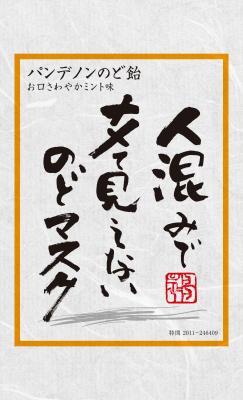 パンデノンのど飴
お口さわやかミント味
人混みで
文て見えない
のどマスク
特開 2011-246409